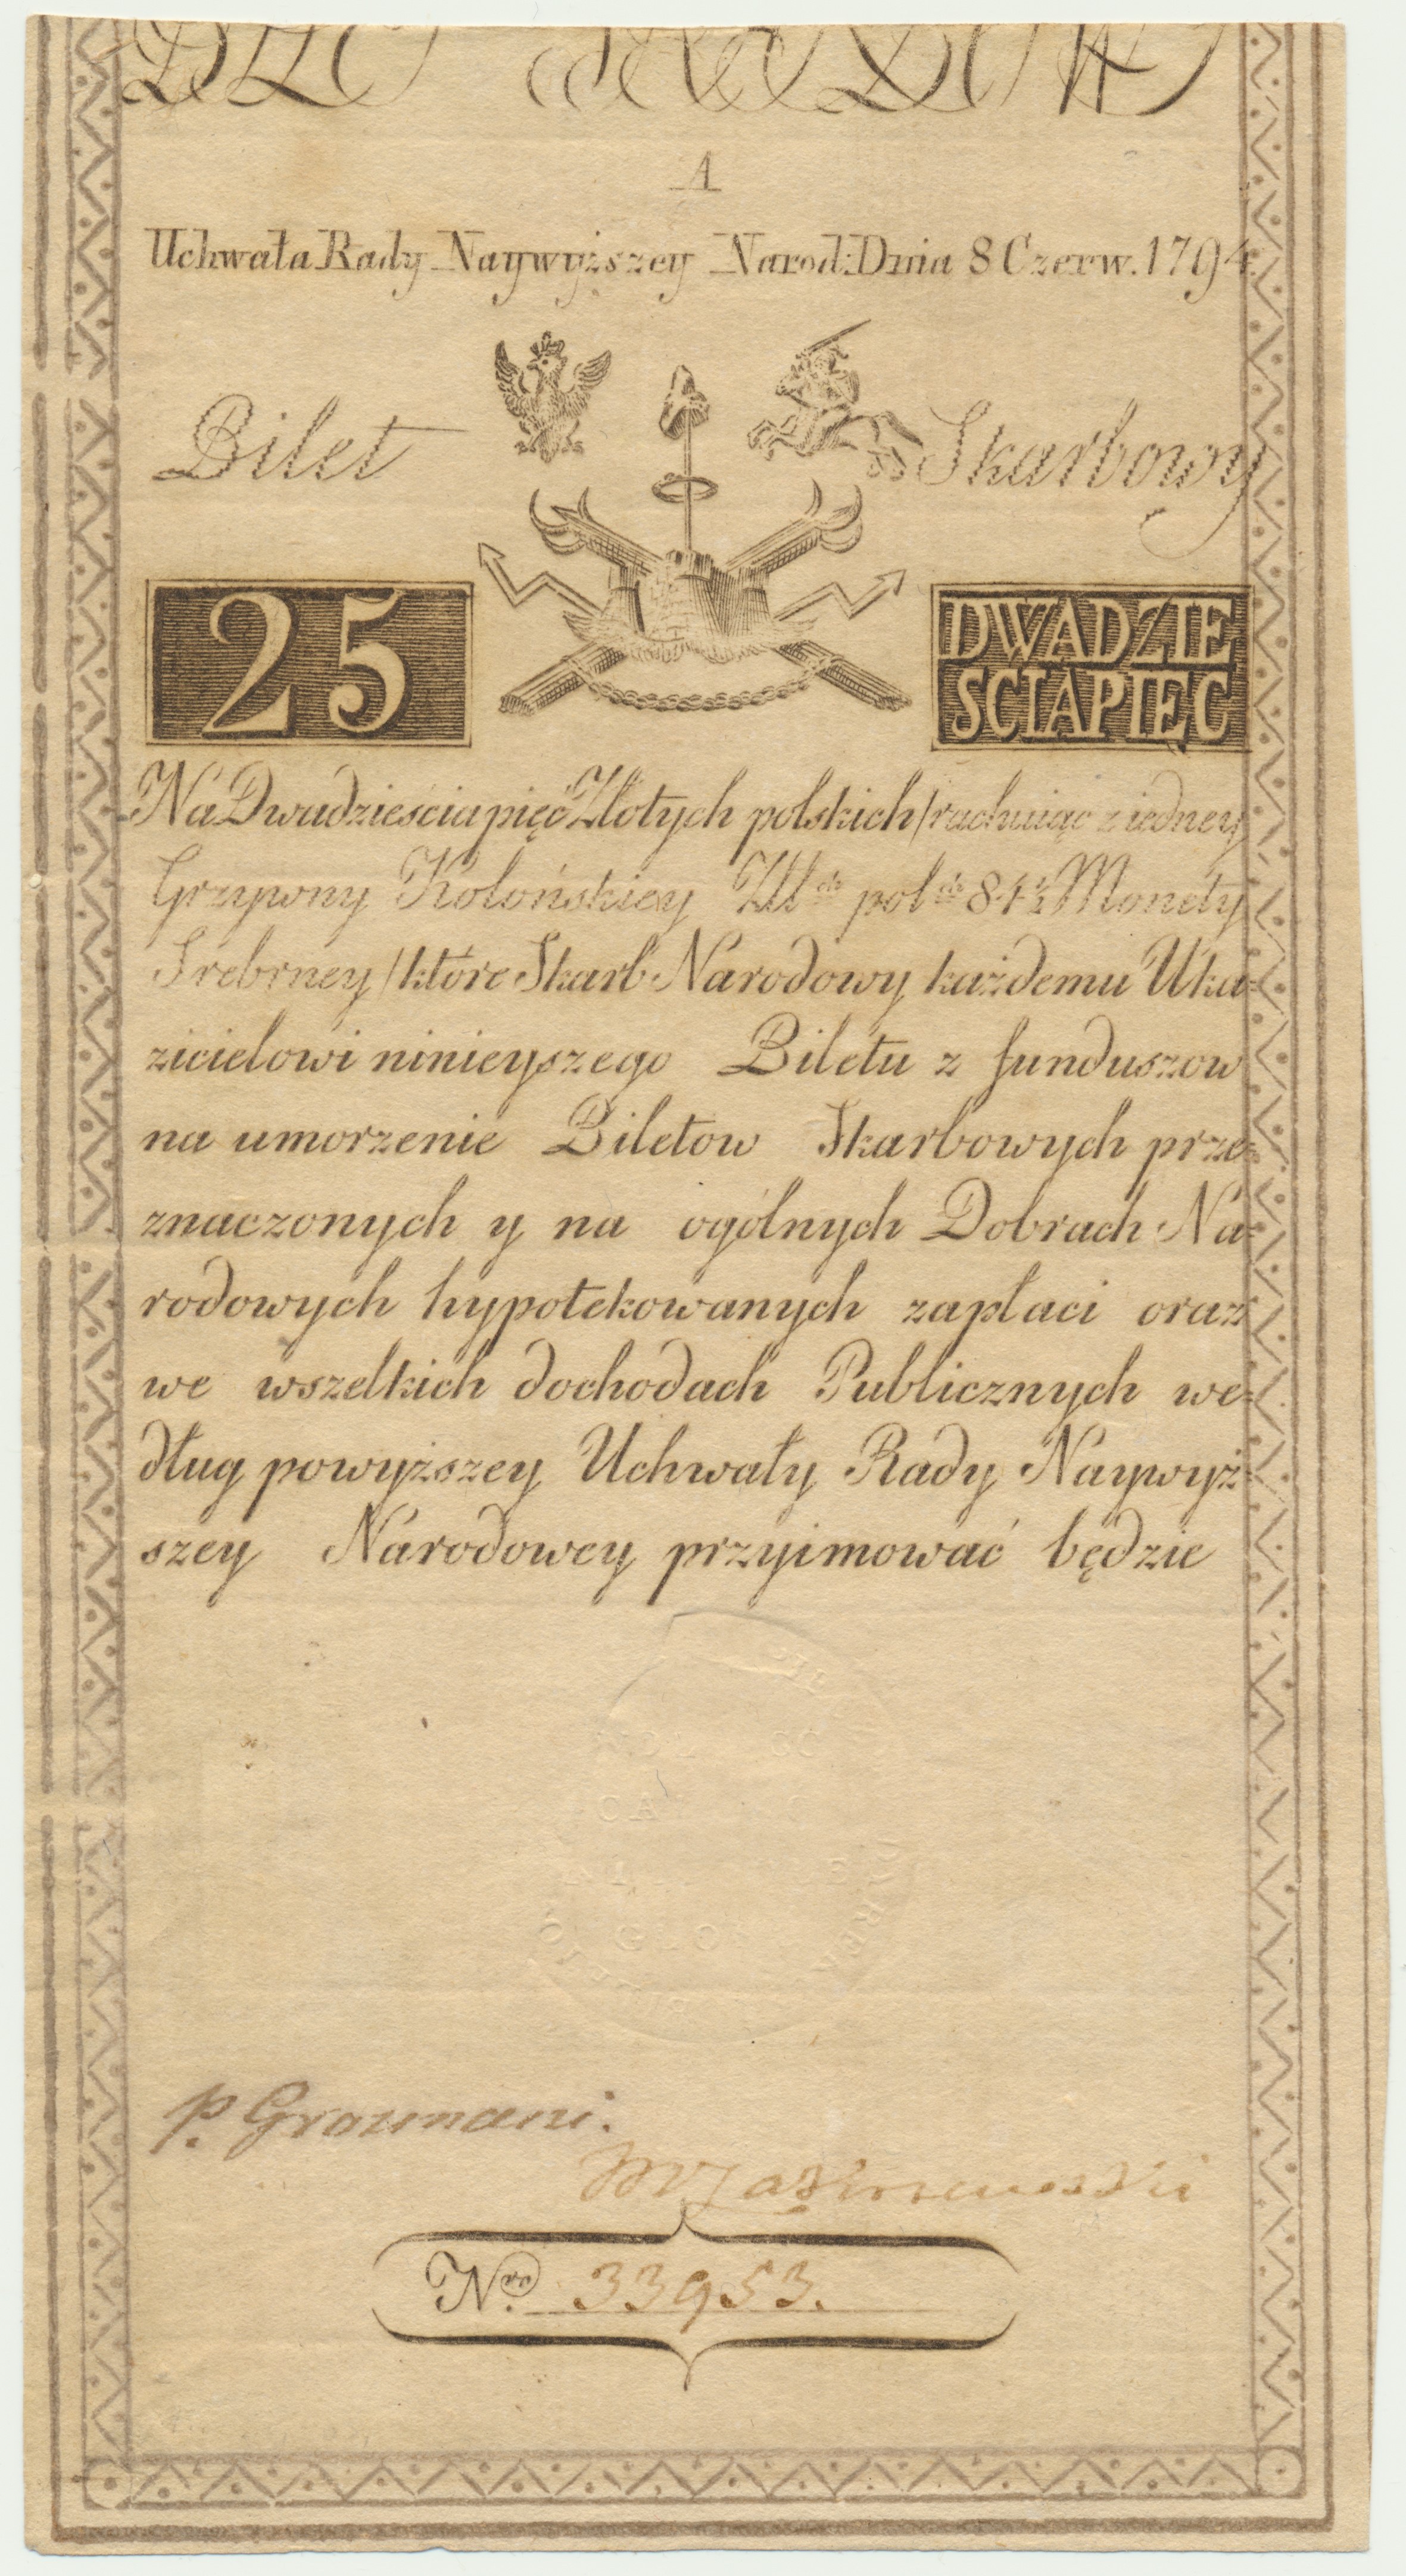 A
Uchwała Rady Naywyższey Narod: Dnia 8 Czerw. 1794
Bilet Skarbowy
25 DWADZIE
SCIAPIĘC
Na Dwadzieścia pięć Złotych polskich /rachuiąc z iedney
Grzywny Kolońskiey Złł ch pol ch 84½ Monety
Srebrney / które Skarb Narodowy każdemu Uka=
zicielowi ninieyszego Biletu z funduszow
na umorzenie Biletow Skarbowych prze=
znaczonych y na ogólnych Dobrach Na=
rodowych hypotekowanych zapłaci oraz
we wszelkich dochodach Publicznych we=
dług powyższey Uchwały Rady Naywyż=
szey Narodowey przyimować będzie
p. Groumani.
Nro. 33953.